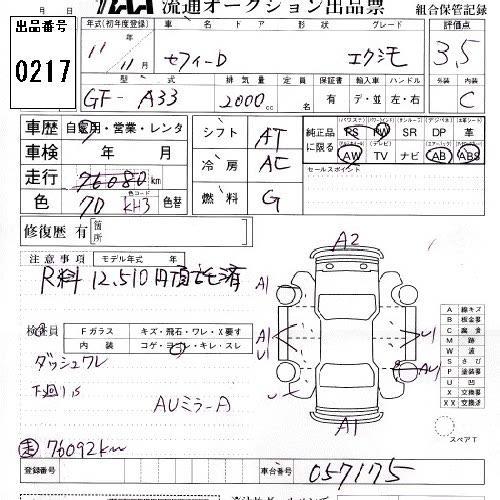 出品番号
0217
流通オークション出品票
組合保管記録
年式(初年度登録) 車名 ドア 形状 グレード 評価点
11年 11月 セフィーロ エクシモ 3.5
型式 排気量 定員 保証書 輸入車 ハンドル 外装 内装
GF-A33 2000cc 有 デ・並 左・右 C
車歴 自家用・営業・レンタ シフト AT
純正品に限る PS PW SR DP 革
AW TV ナビ AB ABS
車検 年 月 冷房 AC
セールスポイント
走行 96080km
色 70 カラーコード KH3 色替 燃料 G
修復歴 有 箇所
注意事項 モデル年式 年
R料 12,510円頂き済
検査員 Fガラス キズ・飛石・ワレ・X要す
内装 コゲ・ヨゴレ・キレ・スレ
ダッシュワレ
下廻1,5
AUミラーA
走 76092km
A2
A1
A1
U1
U1
AU1
A1
A 線キズ
B 板金要
C 腐食
M 跡
W 波
S さび
P 塗装要
U 凹
X 交換要
XX 交換済
スペアT
登録番号 車台番号 057175